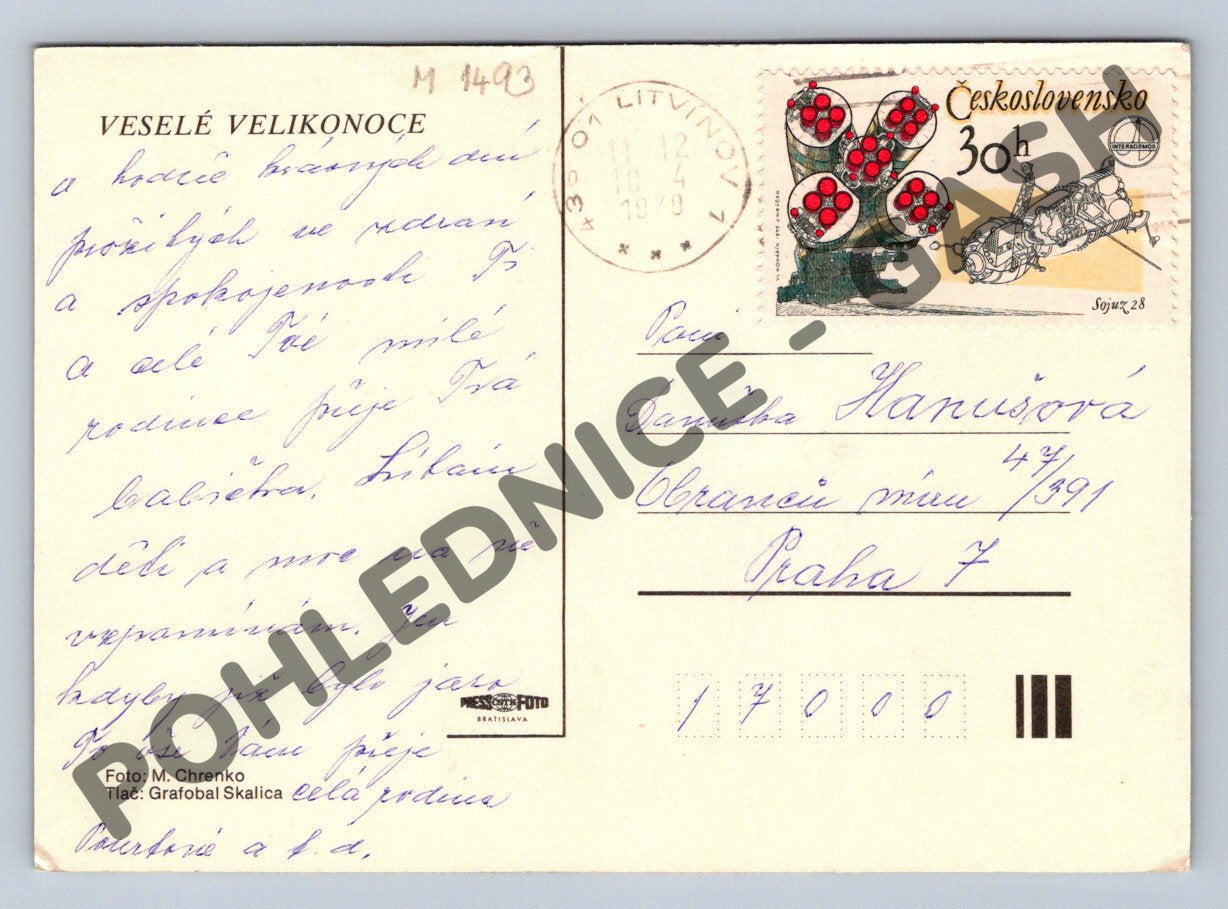 M 1493
VESELÉ VELIKONOCE
a hodně krásných dnů
prožitých ve zdraví
a spokojenosti Ti
a celé Tvé milé
rodince přeje Tvá
babička. Líbám
děti a moc na ně
vzpomínám. Jen
kdyby již bylo jaro
To vše Vám přeje
celá rodina
a t. d.
PRESS ČSTK FOTO
BRATISLAVA
Foto: M. Chrenko
Tlač: Grafobal Skalica
436 01 LITVINOV 1
11-12
18. 4
1979
Československo
30h
INTERKOSMOS
Sojuz 28
Paní
Danuška Hanušová
Obránců míru 47/391
Praha 7
1 7 0 0 0
POHLEDNICE - GASH